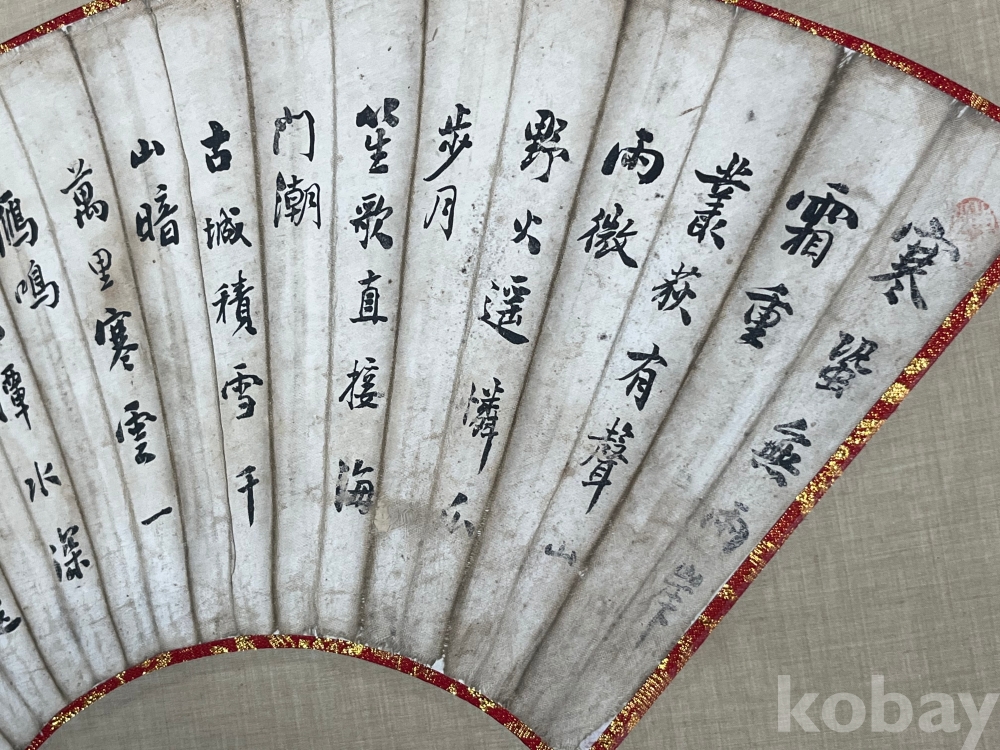 寒蛩無雨
霜重
叢荻有聲山
雨微
野火遥憐瓜
步月
笙歌直接海
門潮
古城積雪千
山暗
萬里寒雲一
鴈鳴
潭水深
kobay